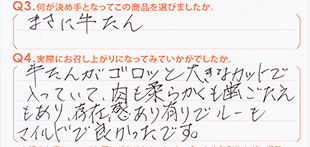 Q3.何が決め手となってこの商品を選びましたか。
まさに牛たん
Q4.実際にお召し上がりになってみていかがでしたか。
牛たんがゴロッと大きなカットで
入っていて、肉も柔らかくも歯ごたえ
もあり、存在感あり有りでルーも
マイルドで良かったです。